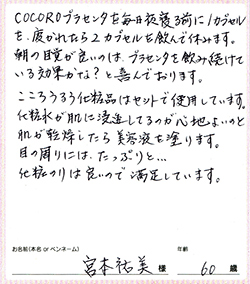 COCOROプラセンタを毎日夜寝る前に1カプセル
を、疲れたら2カプセルを飲んで休みます。
朝の目覚が良いのは、プラセンタを飲み続けて
いる効果かな?と喜んでおります。
こころうるう化粧品はセットで使用しています。
化粧水が肌に浸透してるのが心地よいのと
肌が乾燥したら美容液を塗ります。
目の周りには、たっぷりと…
化粧のりは良いので満足しています。
お名前(本名 or ペンネーム) 年齢
宮本祐美 様 60 歳